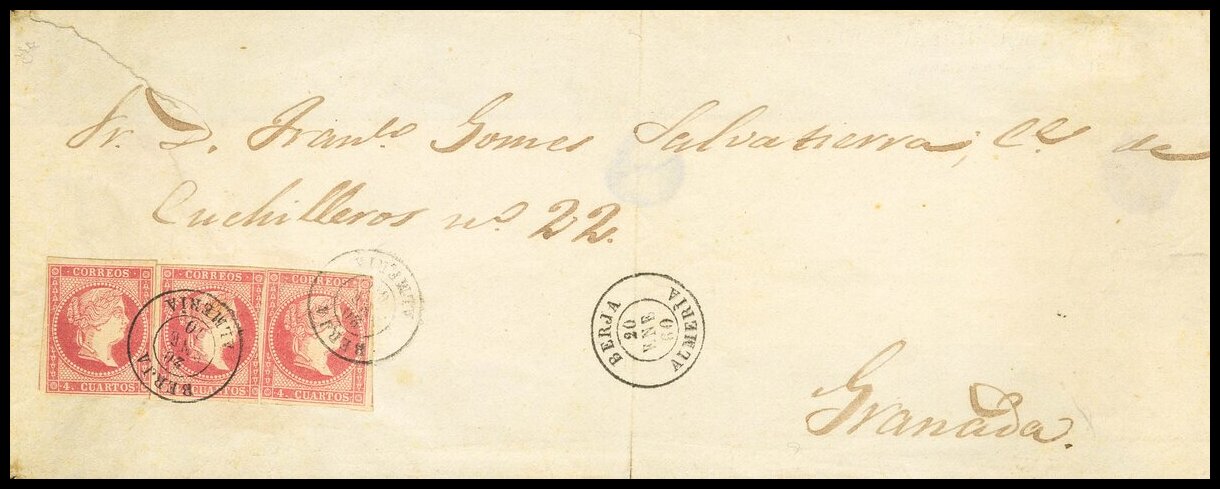 Sr. D. Franco. Gomes Salvatierra, Ce. de
Cuchilleros no. 22.
CORREOS
4. CUARTOS
CORREOS
CUARTOS
CORREOS
4. CUARTOS
BERJA
20
ENE
60
ALMERÍA
BERJA
20
ENE
60
ALMERÍA
BERJA
20
ALMERIA
Granada.